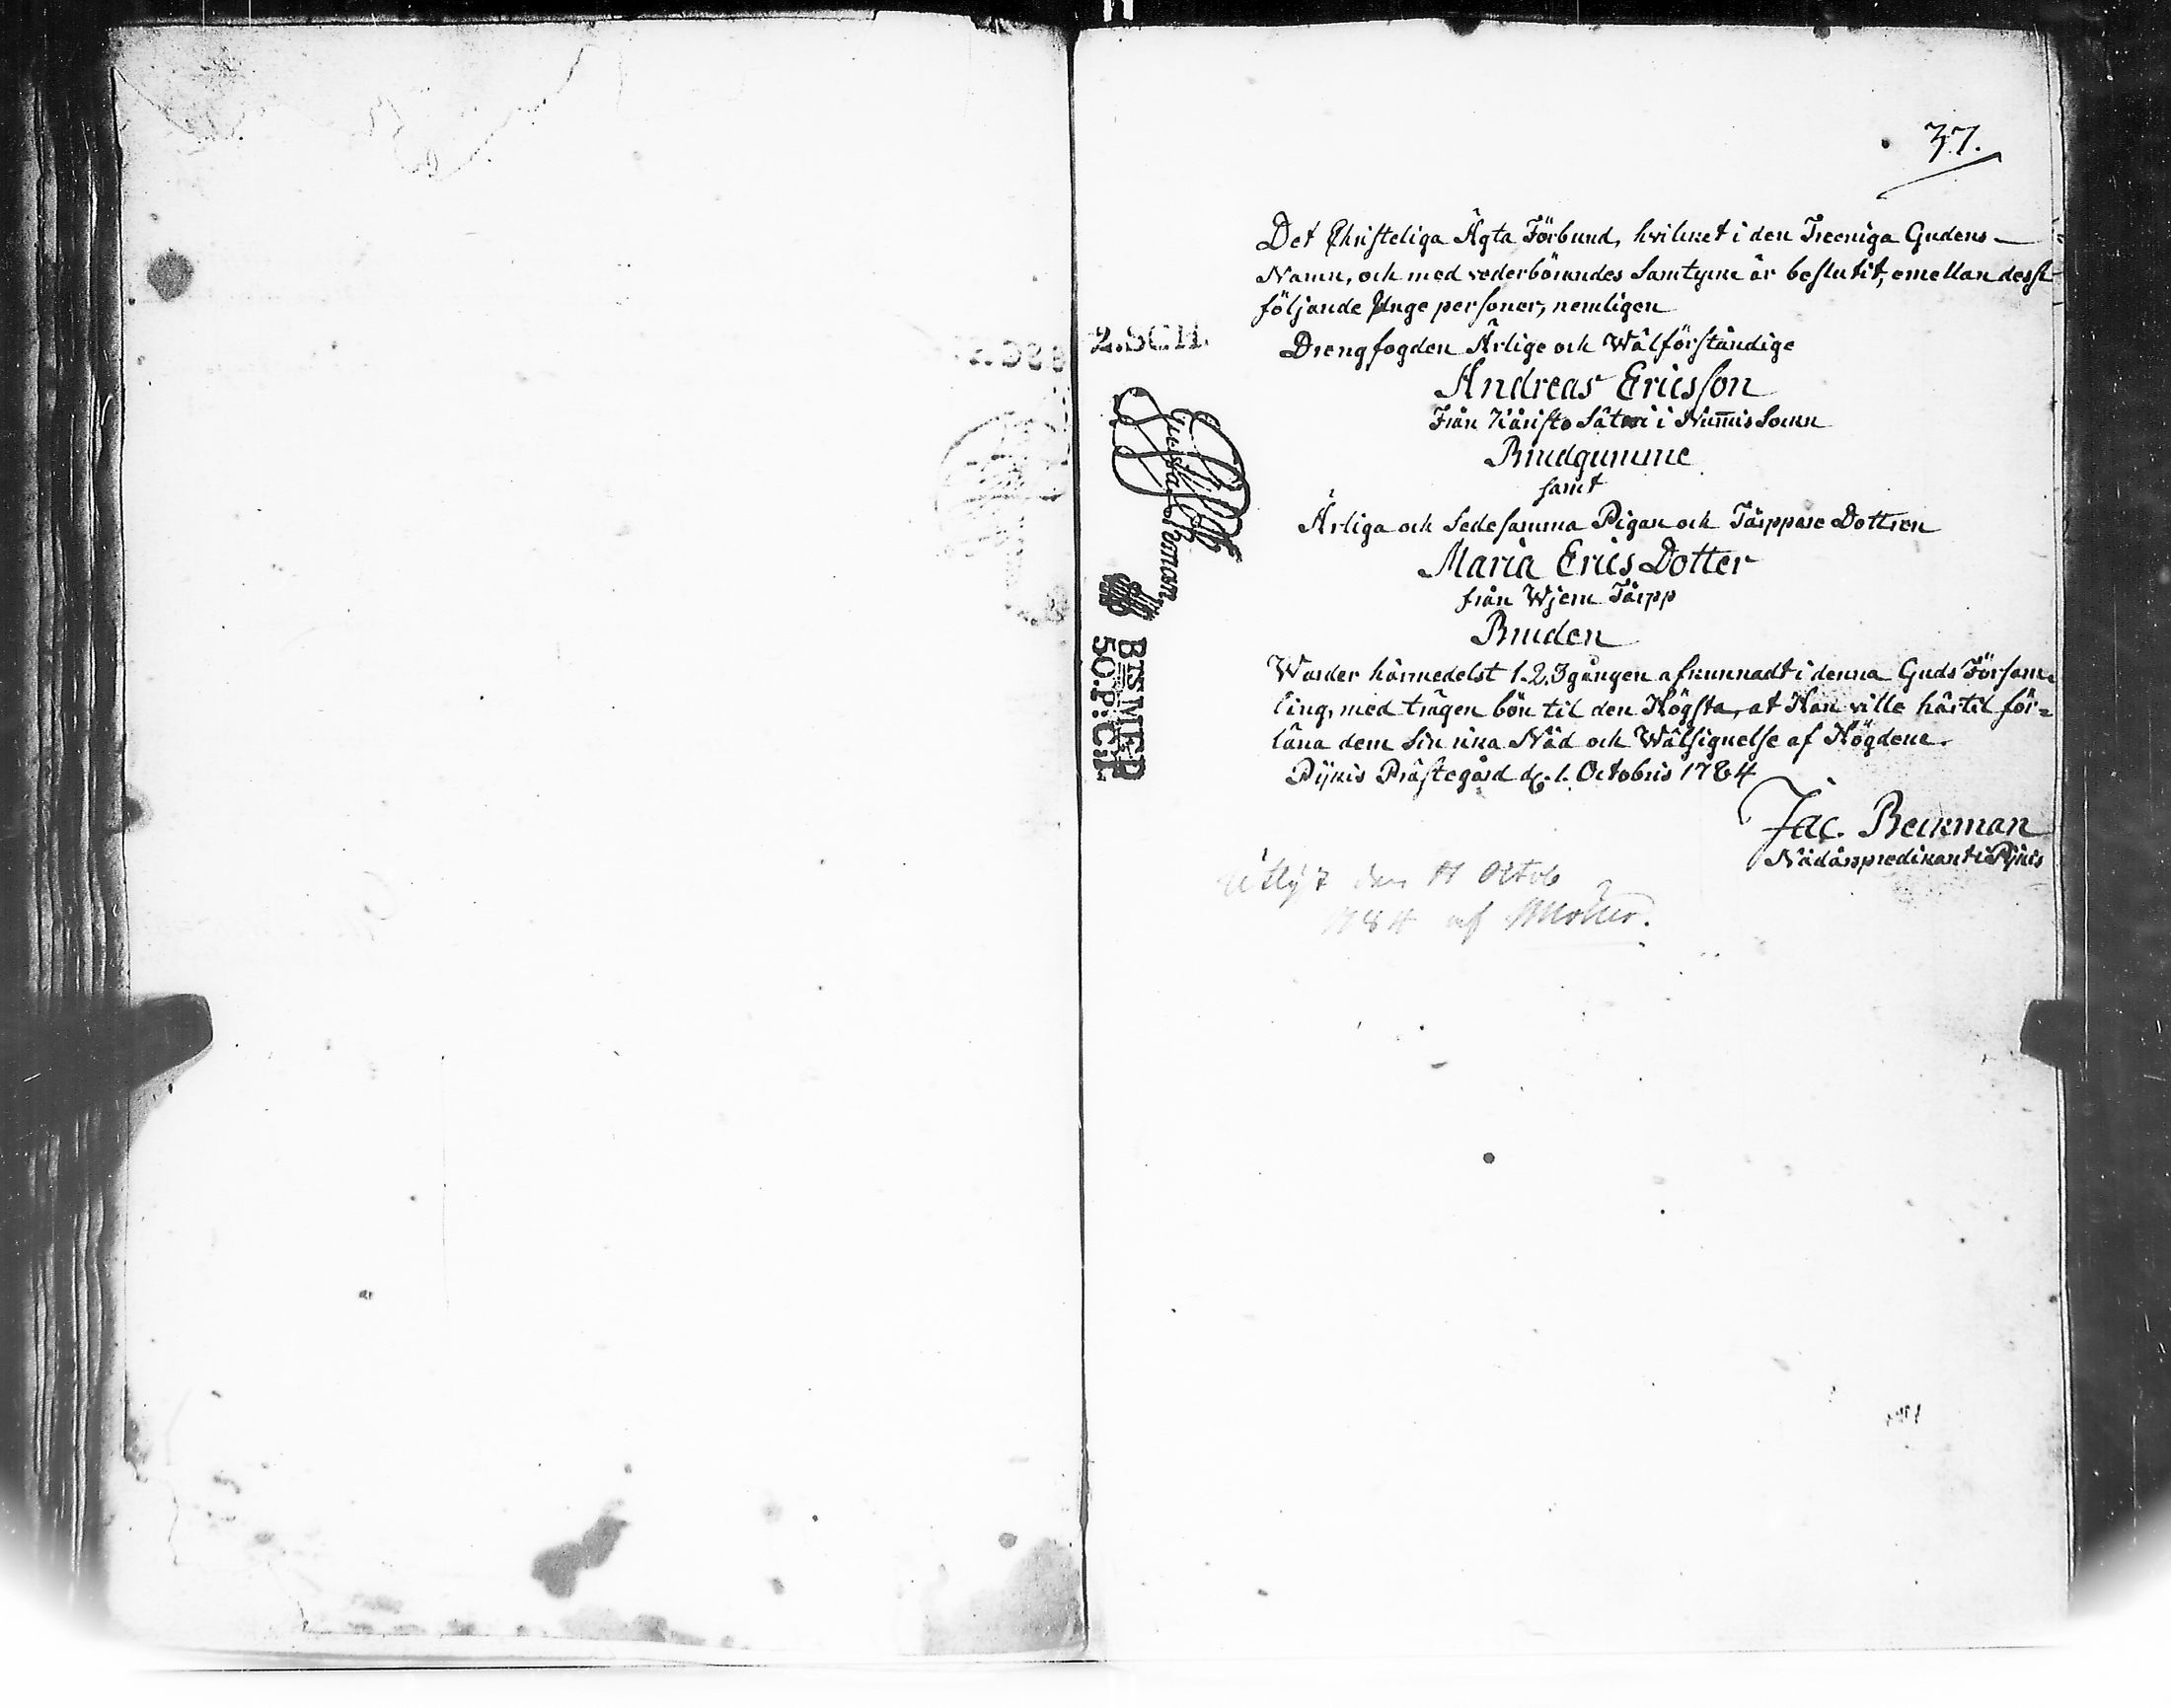 37.
Det Christeliga Ägta Förbund, hvilket i den Treeniga Gudens
Namn, och med vederbörandes Samtycke är beslutit, emellan dess-
följande Unge personer, nemligen
Drengfogden Ärlige och Wälförståndige
Andreas Ericsson
Från Säteri i Num̄is Sockn
Brudgumme
samt
Ärliga och Sedesamma Pigan och Tårppare Dottren
Maria Erics Dotter
från Wjem Tårpp
Bruden
Warder härmedelst 1. 2. 3 gången afkunnadt i denna Guds Försam=
ling, med trägen bön til den Högsta, at Han ville härtil för=
läna dem Sin rika Nåd och Wälsignelse af Högdene.
Pijkis Prästegård d. 1. Octobris 1784
Jac. Beckman
Nådårspredikant i Pijkis
2.SCH.
BES:MED
50.P:C:T
Utlyst den Octob
1784 af